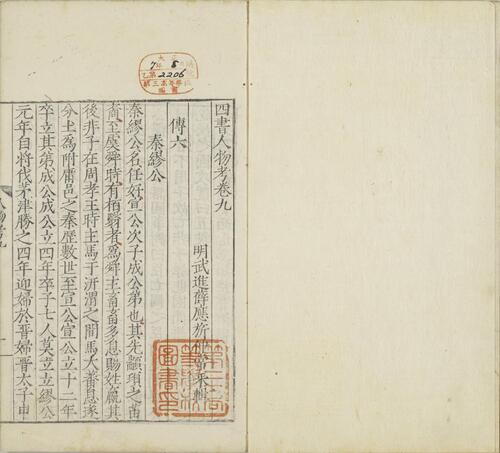 四書人物考卷九
明武進薛應旂仲常采輯
傳六
秦繆公
秦繆公名任好宣公次子成公弟也其先顓頊之苗
裔至虞舜時有栢翳者爲舜主畜畜多息賜姓嬴其
後非子在周孝王時主馬于汧渭之間馬大蕃息遂
分土爲附庸邑之秦歷數世至宣公宣公立十二年
卒立其弟成公成公立四年卒子七人莫立立繆公
元年自將伐茅津勝之四年迎婦於晉婦晉太子申
2206
圖書印